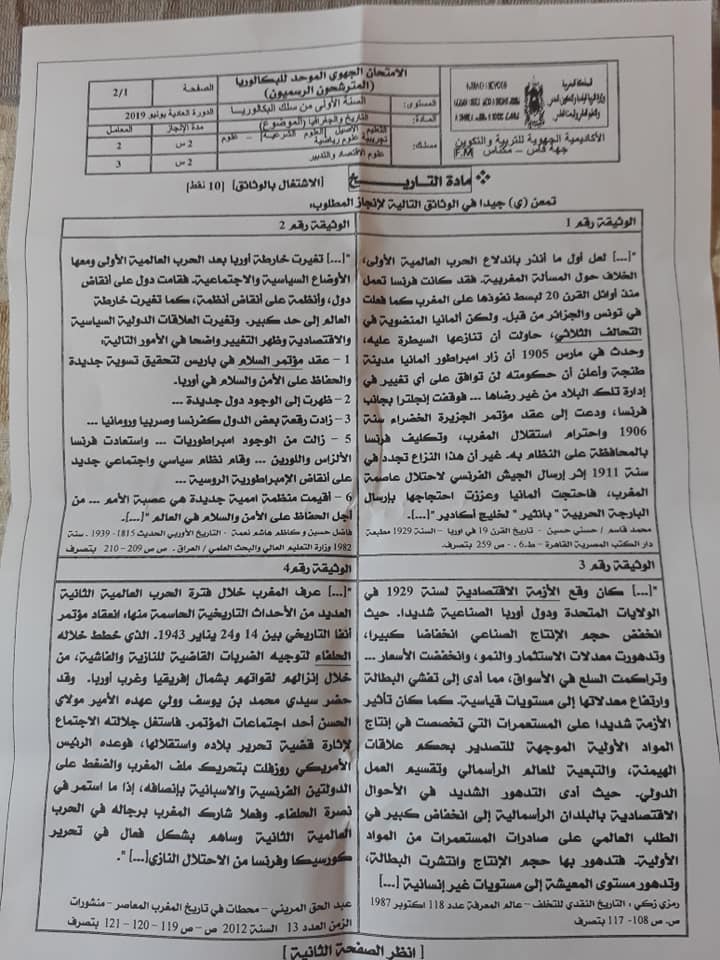 الامتحان الجهوي الموحد للبكالوريا
(المترشحون الرسميون)
الصفحة
2/1
المستوى:
السنة الأولى من سلك البكالوريا
الدورة العادية يونيو 2019
المادة:
التاريخ والجغرافيا (الموضوع)
مدة الإنجاز
المعامل
مسلك:
التعليم الأصيل [العلوم الشرعية] – علوم تجريبية علوم رياضية
2 س
2
علوم الاقتصاد والتدبير
2 س
3
المملكة المغربية
الأكاديمية الجهوية للتربية والتكوين
جهة فاس – مكناس F.M
❖ مادة التاريخ [الاشتغال بالوثائق] [10 نقط]
تمعن (ي) جيدا في الوثائق التالية لإنجاز المطلوب:
الوثيقة رقم 1
"[...] لعل أول ما أنذر باندلاع الحرب العالمية الأولى،
الخلاف حول المسألة المغربية. فقد كانت فرنسا تعمل
منذ أوائل القرن 20 لبسط نفوذها على المغرب كما فعلت
في تونس والجزائر من قبل. ولكن ألمانيا المنضوية في
التحالف الثلاثي، حاولت أن تنازعها السيطرة عليه،
وحدث في مارس 1905 أن زار امبراطور ألمانيا مدينة
طنجة وأعلن أن حكومته لن توافق على أي تغيير في
إدارة تلك البلاد من غير رضاها ... فوقفت إنجلترا بجانب
فرنسا، ودعت إلى عقد مؤتمر الجزيرة الخضراء سنة
1906 واحترام استقلال المغرب، وتكليف فرنسا
بالمحافظة على النظام به. غير أن هذا النزاع تجدد في
سنة 1911 إثر إرسال الجيش الفرنسي لاحتلال عاصمة
المغرب، فاحتجت ألمانيا وعززت احتجاجها بإرسال
البارجة الحربية " بانثير " لخليج أكادير "[...].
محمد قاسم / حسني حسين – تاريخ القرن 19 في اوربا – السنة 1929 مطبعة
دار الكتب المصرية القاهرة – ط.6 . – ص 259 بتصرف.
الوثيقة رقم 2
"[...] تغيرت خارطة أوربا بعد الحرب العالمية الأولى ومعها
الأوضاع السياسية والاجتماعية. فقامت دول على أنقاض
دول، وأنظمة على أنقاض أنظمة، كما تغيرت خارطة
العالم إلى حد كبير. وتغيرت العلاقات الدولية السياسية
والاقتصادية وظهر التغيير واضحا في الأمور التالية:
1 – عقد مؤتمر السلام في باريس لتحقيق تسوية جديدة
والحفاظ على الأمن والسلام في أوربا.
2 – ظهرت إلى الوجود دول جديدة ...
3 – زادت رقعة بعض الدول كفرنسا وصربيا ورومانيا ...
5 – زالت من الوجود امبراطوريات ... واستعادت فرنسا
الألزاس واللورين ... وقام نظام سياسي واجتماعي جديد
على أنقاض الإمبراطورية الروسية ...
6 – أقيمت منظمة اممية جديدة هي عصبة الأمم ... من
أجل الحفاظ على الأمن والسلام في العالم "[...].
فاضل حسين وكاظم هاشم نعمة – التاريخ الأوربي الحديث 1815- 1939 . سنة
1982 وزارة التعليم العالي والبحث العلمي / العراق. ص ص 209- 210 بتصرف
الوثيقة رقم 3
"[...] كان وقع الأزمة الاقتصادية لسنة 1929 في
الولايات المتحدة ودول أوربا الصناعية شديدا. حيث
انخفض حجم الإنتاج الصناعي انخفاضا كبيرا،
وتدهورت معدلات الاستثمار والنمو، وانخفضت الأسعار ...
وتراكمت السلع في الأسواق، مما أدى إلى تفشي البطالة
وارتفاع معدلاتها إلى مستويات قياسية. كما كان تأثير
الأزمة شديدا على المستعمرات التي تخصصت في إنتاج
المواد الأولية الموجهة للتصدير بحكم علاقات
الهيمنة، والتبعية للعالم الرأسمالي وتقسيم العمل
الدولي. حيث أدى التدهور الشديد في الأحوال
الاقتصادية بالبلدان الرأسمالية إلى انخفاض كبير في
الطلب العالمي على صادرات المستعمرات من المواد
الأولية. فتدهور بها حجم الإنتاج وانتشرت البطالة،
وتدهور مستوى المعيشة إلى مستويات غير إنسانية [...]
رمزي زكي ، التاريخ النقدي للتخلف – عالم المعرفة عدد 118 اكتوبر 1987
ص. ص 108- 117 بتصرف
الوثيقة رقم4
"[...] عرف المغرب خلال فترة الحرب العالمية الثانية
العديد من الأحداث التاريخية الحاسمة منها، انعقاد مؤتمر
أنفا التاريخي بين 14 و24 يناير 1943. الذي خطط خلاله
الحلفاء لتوجيه الضربات القاضية للنازية والفاشية، من
خلال إنزالهم لقواتهم بشمال إفريقيا وغرب أوربا. وقد
حضر سيدي محمد بن يوسف وولي عهده الأمير مولاي
الحسن أحد اجتماعات المؤتمر. فاستغل جلالته الاجتماع
لإثارة قضية تحرير بلاده واستقلالها، فوعده الرئيس
الأمريكي روزفلت بتحريك ملف المغرب والضغط على
الدولتين الفرنسية والاسبانية بإنصافه، إذا ما استمر في
نصرة الحلفاء. وفعلا شارك المغرب برجاله في الحرب
العالمية الثانية وساهم بشكل فعال في تحرير
كورسيكا وفرنسا من الاحتلال النازي[...] ".
عبد الحق المريني – محطات في تاريخ المغرب المعاصر – منشورات
الزمن العدد 13 السنة 2012 ص – ص 119 – 120 – 121 بتصرف
[ انظر الصفحة الثانية ]